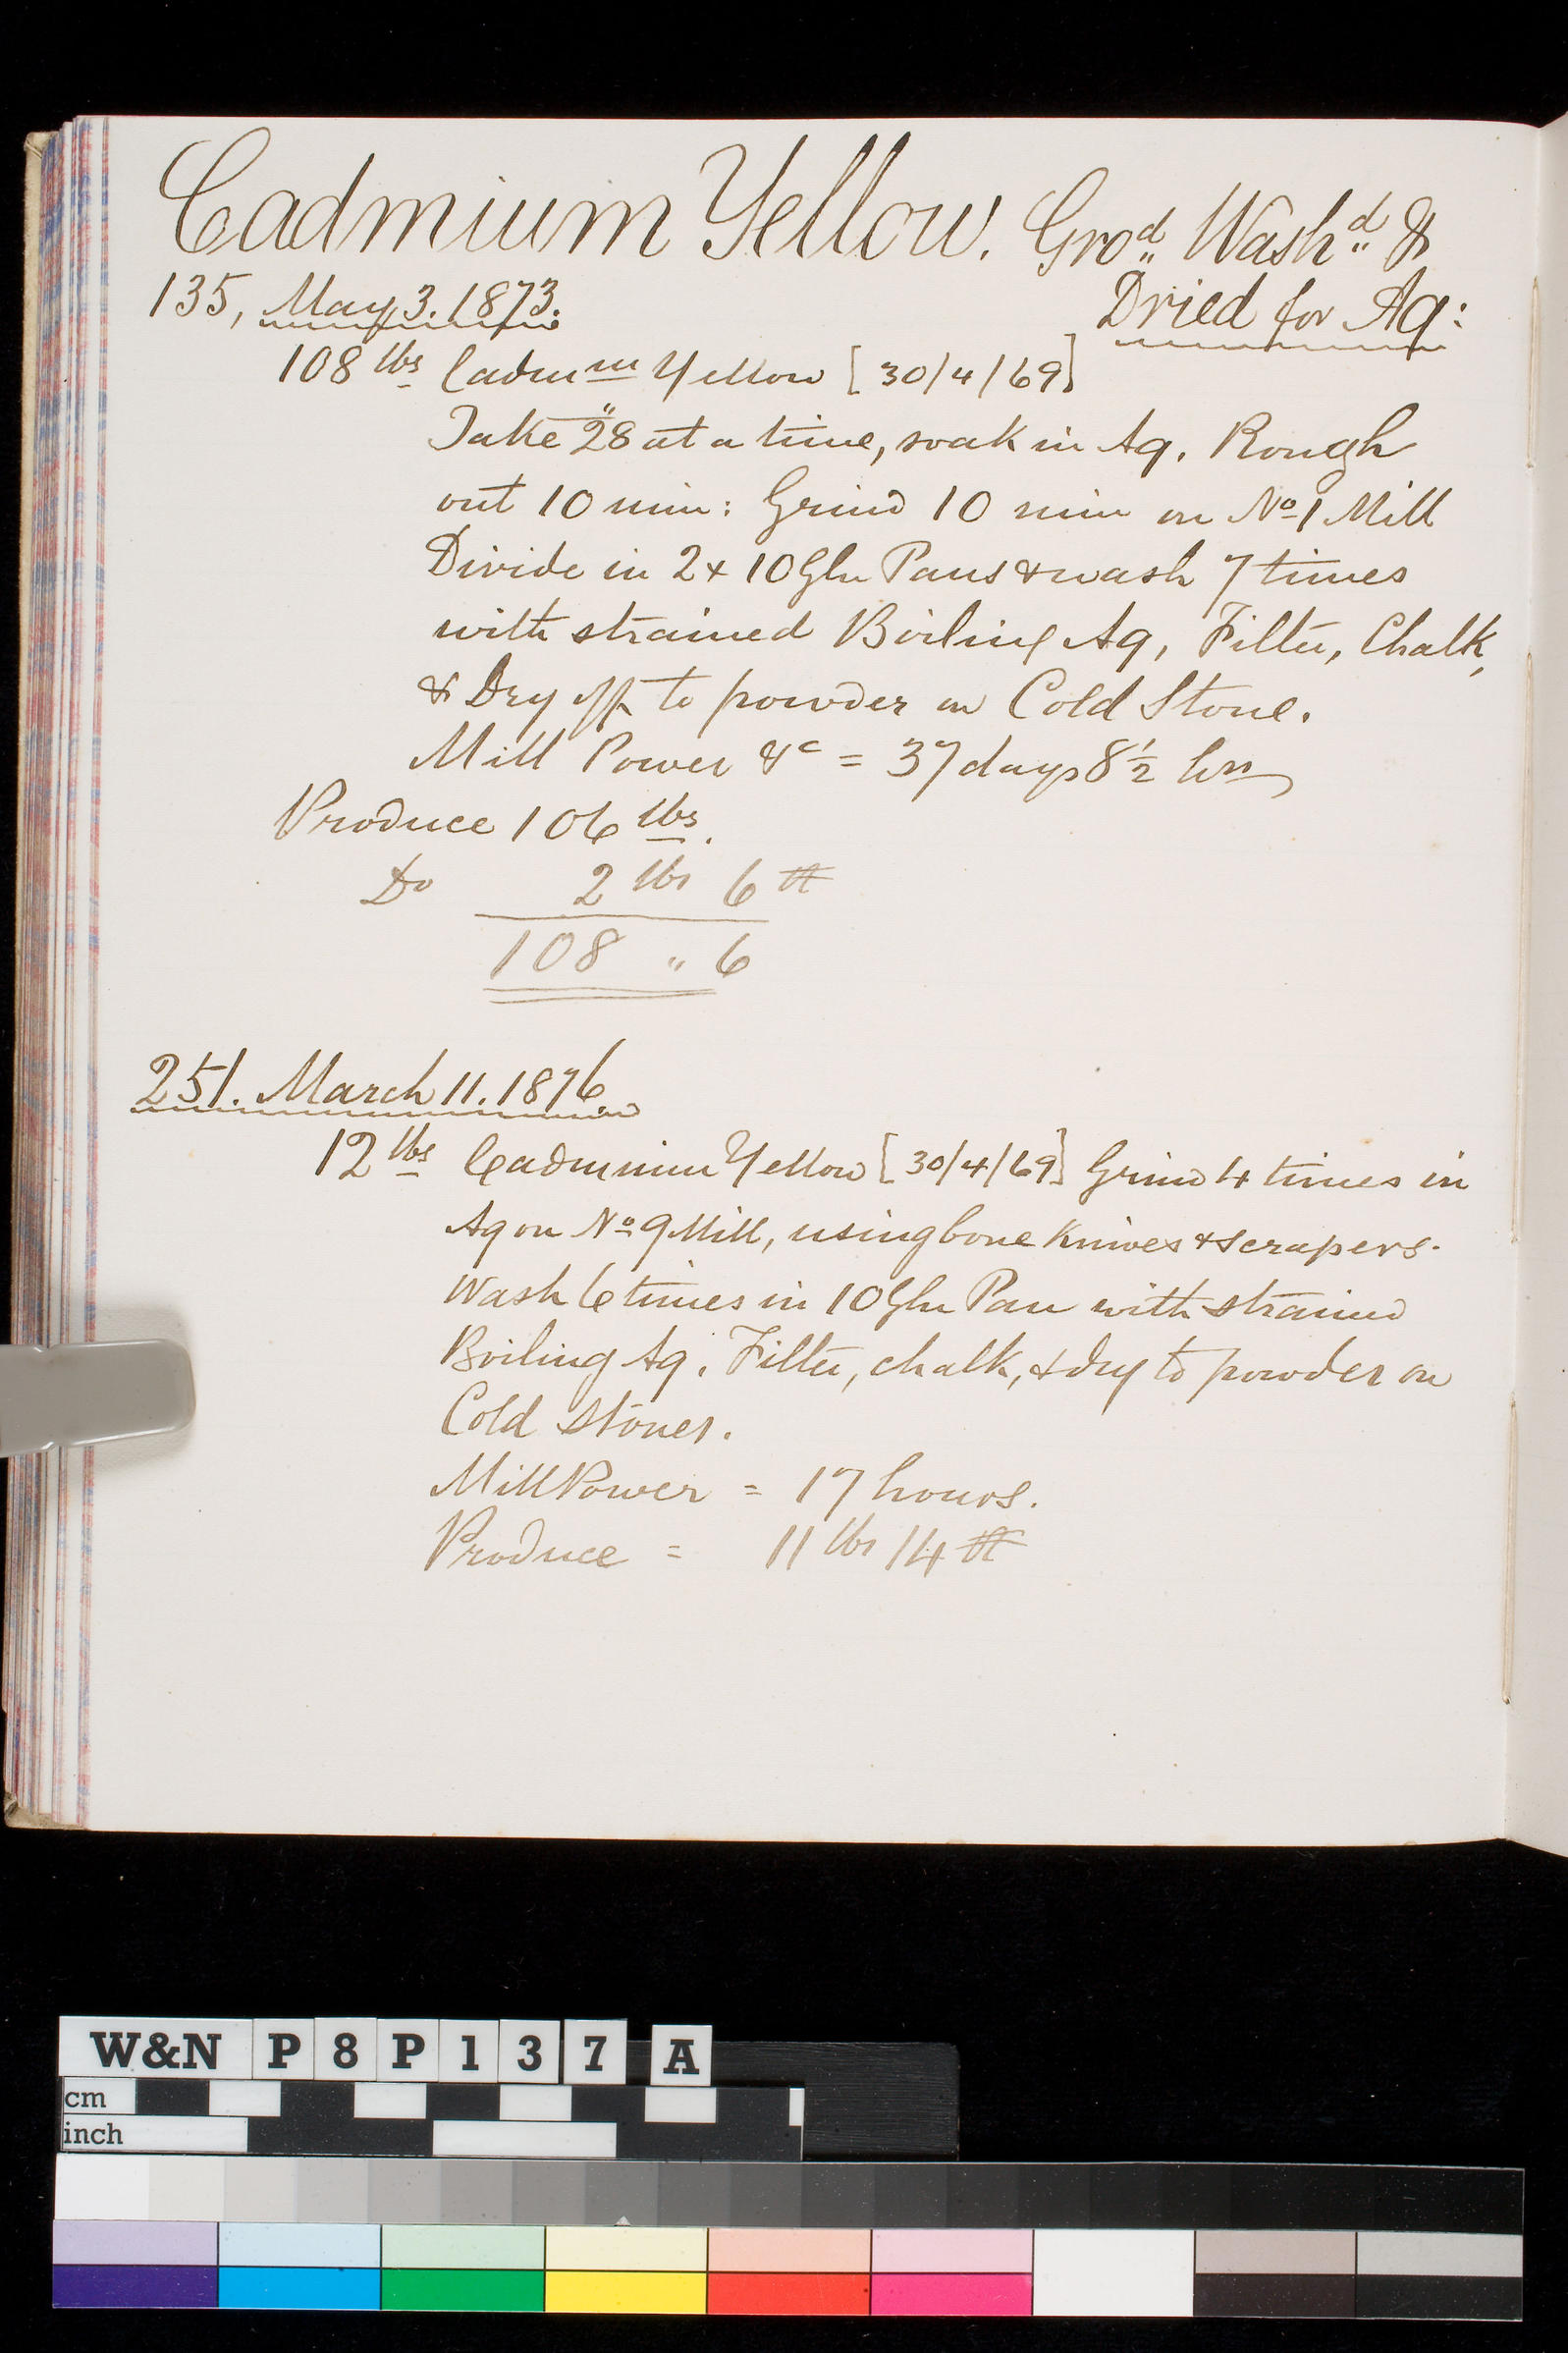 Cadmium Yellow. Gro.d Wash.d &
135, May 3. 1873. Dried for Aq:
108 lbs Cadmm Yellow [30/4/69]
Take 28 at a time, soak in Aq. Rough
out 10 min: Grind 10 min on No 1 Mill
Divide in 2 x 10 Gln Pans & wash 7 times
with strained Boiling Aq, Filter, Chalk,
& Dry off to powder on Cold Stone.
Mill Power &c = 37 days 8½ hrs
Produce 106 lbs.
Do 2 lbs 6
108 " 6
251. March 11. 1876.
12 lbs Cadmium Yellow [30/4/69] Grind 4 times in
Aq on No 9 Mill, using bone Knives & scrapers.
Wash 6 times in 10 Gln Pan with strained
Boiling Aq. Filter, chalk, & dry to powder on
Cold Stones.
Mill Power = 17 hours.
Produce = 11 lbs 14
W&N P8P137 A
cm
inch